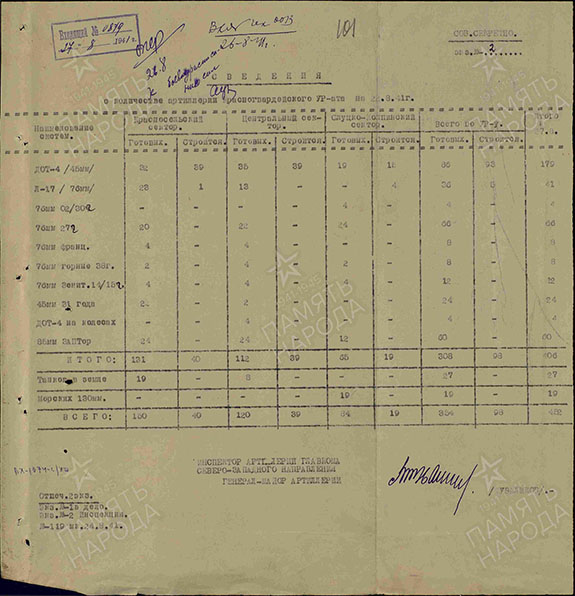 Входящий № 0879
27 - 8 - 1941 г.
опер
26.8
26-8-41 г.
101
СОВ.СЕКРЕТНО.
экз.№ 2
СВЕДЕНИЯ
о количестве артиллерии Красногвардейского УР-ата на 22.8.41г.
Наименование систем. Красносельский сектор. Центральный сектор. Слуцко-Колпинский сектор. Всего по УР-у. Итого
Готовых. Строится. Готовых. Строится. Готовых. Строится. Готовых. Строится.
ДОТ-4 /45мм/ 32 39 35 39 19 15 86 93 179
Л-17 / 76мм/ 23 1 13 - - 4 36 5 41
76мм 02/30г - - - - 4 - 4 - 4
76мм 27г 20 - 22 - 24 - 66 - 66
76мм франц. 4 - 4 - - - 8 - 8
76мм горные 38г. 2 - 4 - 2 - 8 - 8
76мм Зенит.14/15г. 4 - 4 - 4 - 12 - 12
45мм 31 года - - - 24 - 24
ДОТ-4 на колесах - - 4 - - - 4 - 4
85мм ЗАПТор 24 - 24 - 12 - 60 - 60
ИТОГО: 131 40 112 39 65 19 308 98 406
Танков в земле 19 - 8 - - - 27 - 27
Морских 130мм. - - - - 19 - 19 - 19
ВСЕГО: 150 40 120 39 84 19 354 98 452
ИНСПЕКТОР АРТИЛЛЕРИИ ГЛАВКОМА
СЕВЕРО-ЗАПАДНОГО НАПРАВЛЕНИЯ
ГЕНЕРАЛ-МАЙОР АРТИЛЛЕРИИ
Отпеч.2экз.
Экз.№-1в дело.
Экз.№-2
№-119 мк.24.8.41.
ПАМЯТЬ
НАРОДА